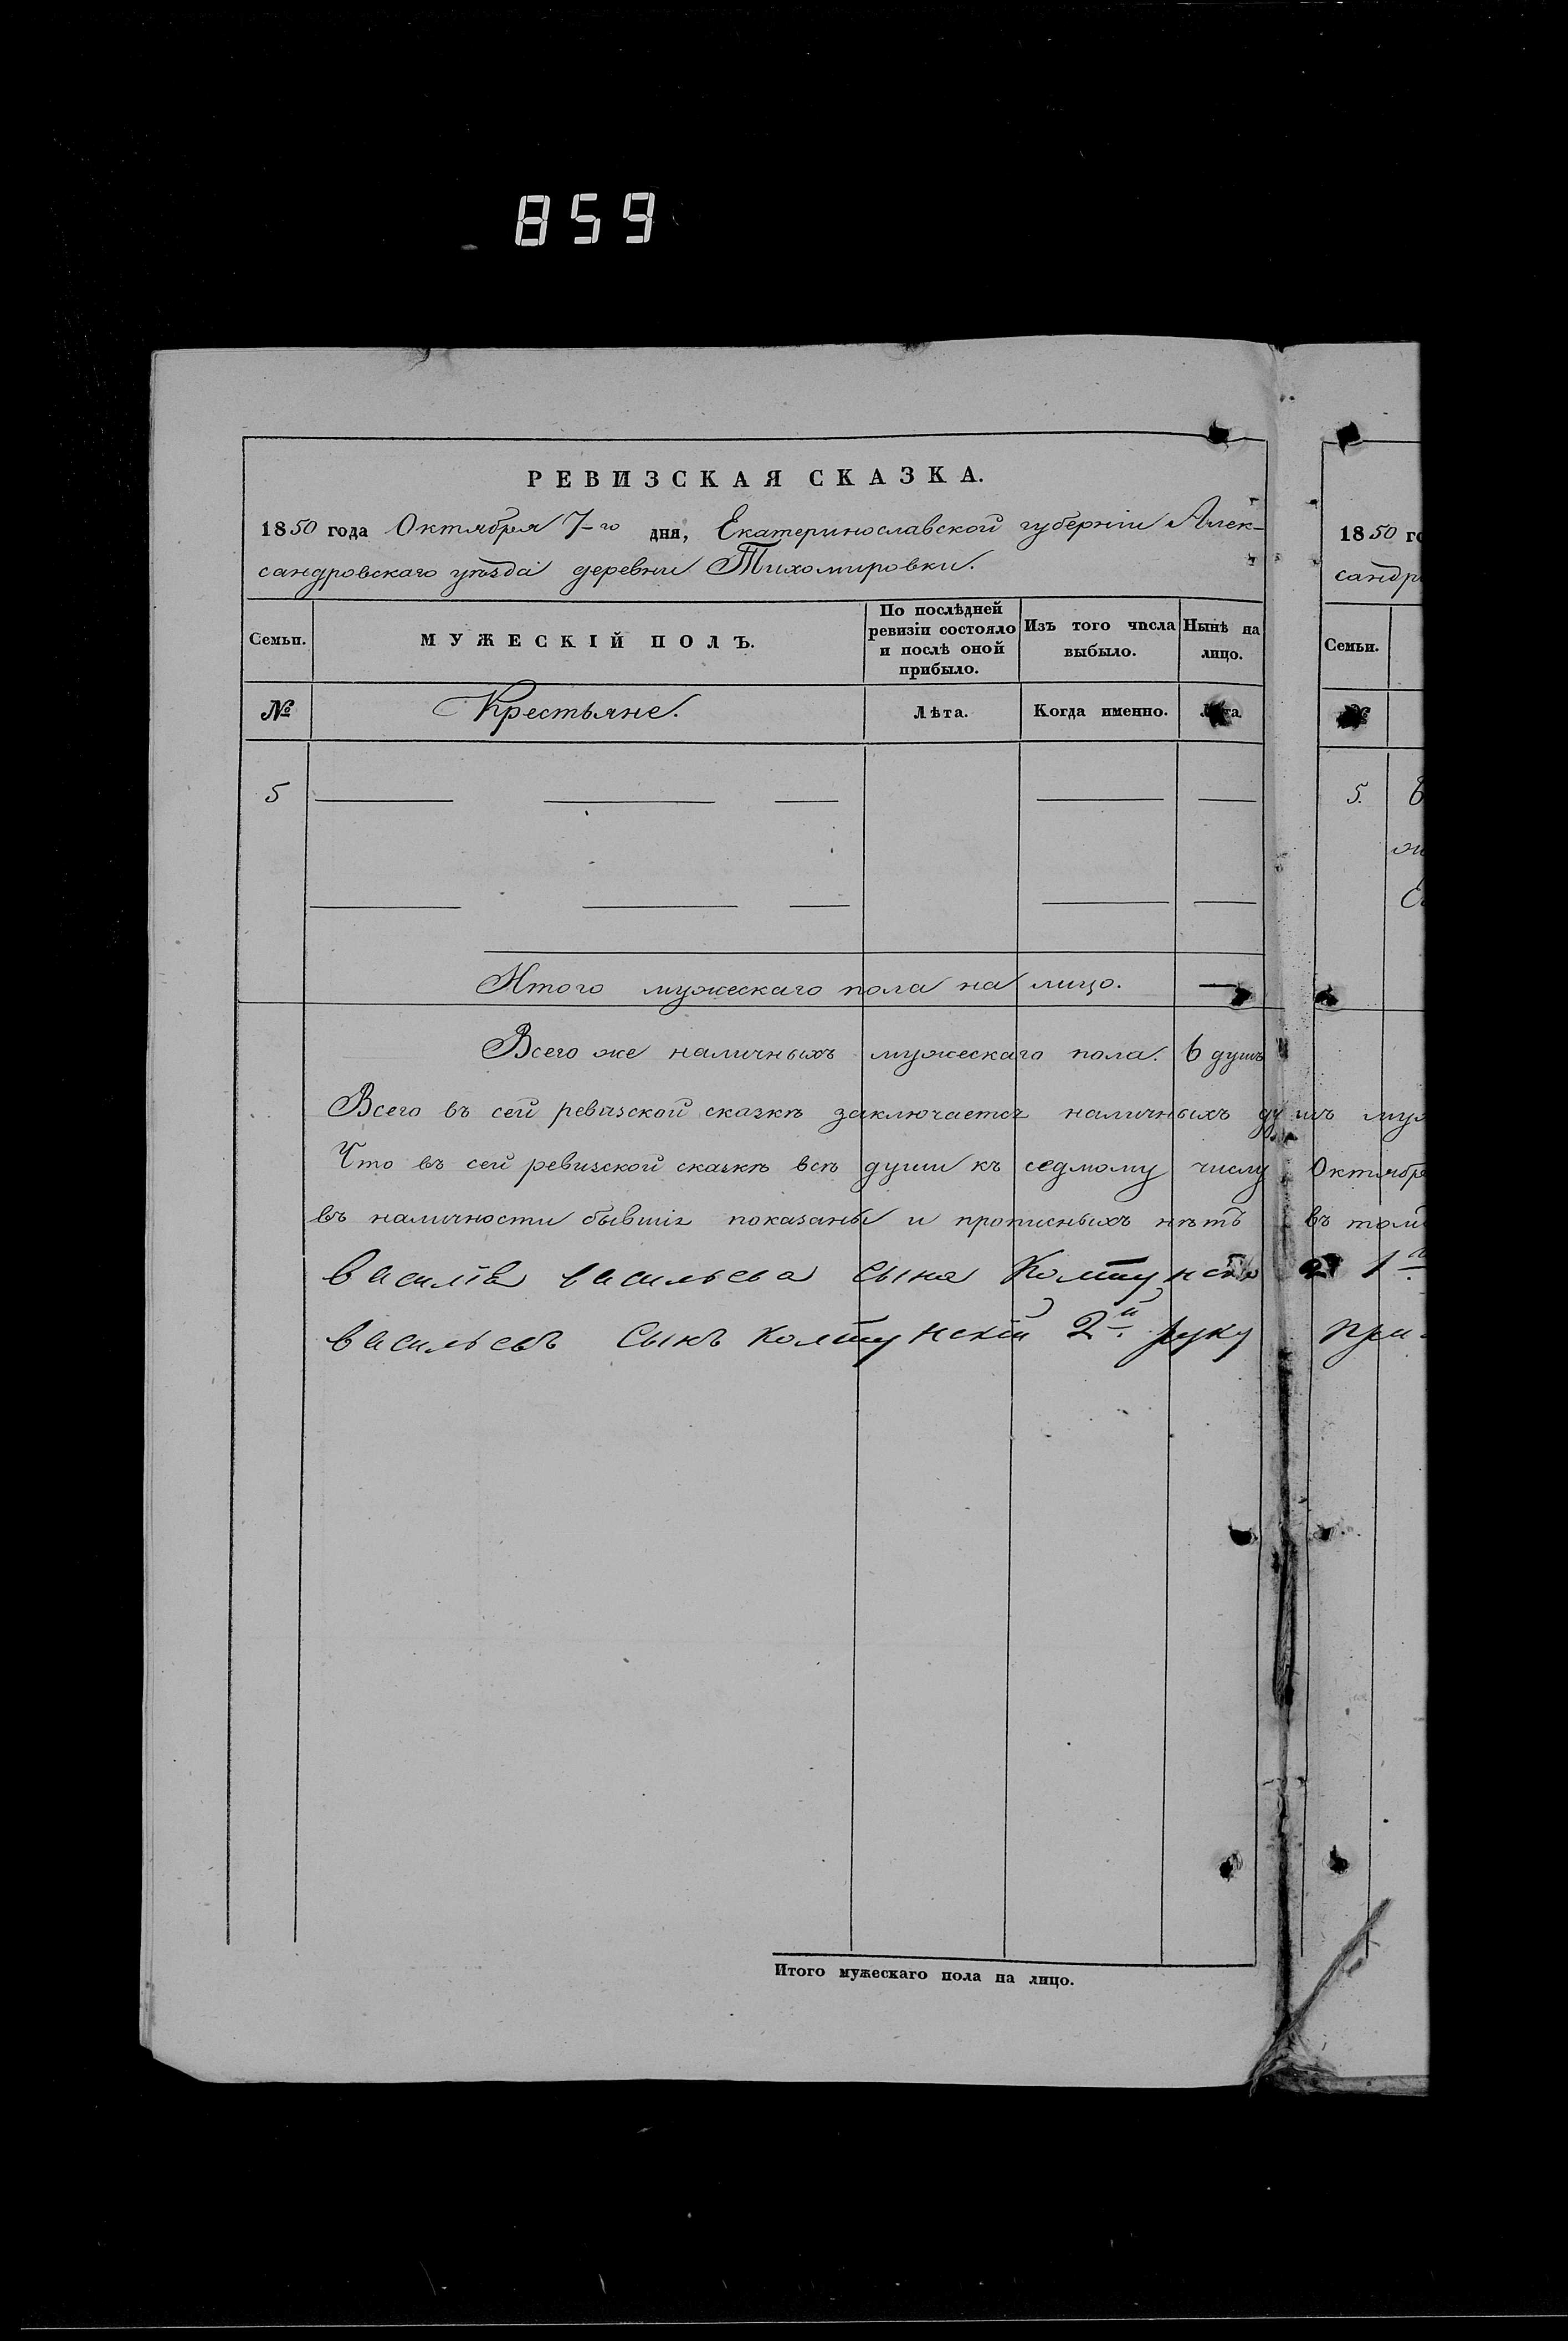 859
РЕВИЗСКАЯ СКАЗКА.
1850 года Октября 7-го дня, Екатеринославской губерніи Алек-
сандровскаго уѣзда деревни Тихомировки.
Семьи.
МУЖЕСКІЙ ПОЛЪ.
По послѣдней
ревизіи состояло
и послѣ оной
прибыло.
Изъ того числа
выбыло.
Нынѣ на
лицо.
№
Крестьяне.
Лѣта.
Когда именно.
Лѣта
5
Итого мужескаго пола на лицо. —
Всего же наличныхъ мужескаго пола. 6 душъ
Всего въ сей ревизской сказкѣ заключается наличныхъ душъ муж
Что въ сей ревизской сказкѣ всѣ души къ седмому числу Октябр
въ наличности бывшія показаны и прописныхъ нѣтъ въ томъ
василія васильева сына 1
васильевъ сынъ 2й руку при
Итого мужескаго пола на лицо.
1850 го
сандр
Семьи.
№
5.